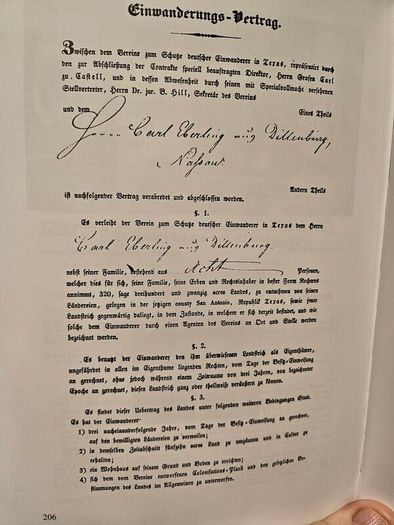 Einwanderungs-Vertrag.
Zwischen dem Vereine zum Schutze deutscher Einwanderer in Texas, repräsentirt durch
den zur Abschließung der Contrakte speciell beauftragten Direktor, Herrn Grafen Carl
zu Castell, und in dessen Abwesenheit durch seinen mit Specialvollmacht versehenen
Stellvertreter, Herrn Dr. jur. B. Hill, Sekretär des Vereins
Eines Theils
und dem
Herrn Carl Eberling aus Dillenburg,
Nassau
Andern Theils
ist nachfolgender Vertrag verabredet und abgeschlossen worden.
§. 1.
Es verleiht der Verein zum Schutze deutscher Einwanderer in Texas dem Herrn
Carl Eberling aus Dillenburg.
nebst seiner Familie, bestehend aus Acht Personen,
welcher dies für sich, seine Familie, seine Erben und Rechtsinhaber in bester Form Rechtens
annimmt, 320, sage dreihundert und zwanzig acres Land, zu entnehmen von seinen
Ländereien, gelegen in der jetzigen county San Antonio, Republik Texas, sowie seine
Landschaft gegenwärtig daliegt, in dem Zustande, in welchem er sich derzeit befindet, und wie
solche dem Einwanderer durch einen Agenten des Vereins an Ort und Stelle werden
bezeichnet werden.
§. 2.
Es benutzt der Einwanderer den ihm überwiesenen Landstrich als Eigenthümer,
ungefährdet in allen im Eigenthume liegenden Rechten, vom Tage der Besitz-Einweisung
an gerechnet, ohne jedoch während einem Zeitraume von drei Jahren, von bezeichneter
Epoche an gerechnet, diesen Landstrich ganz oder theilweise veräußern zu können.
§. 3.
Es findet dieser Uebertrag des Landes unter folgenden weiteren Bedingungen statt.
Es hat der Einwanderer
1) drei nacheinanderfolgende Jahre, vom Tage der Besitz-Einweisung an gerechnet,
auf den bewilligten Ländereien zu verweilen;
2) in demselben Zeitabschnitt fünfzehn acres Land zu umzäunen und in Cultur zu
erhalten;
3) ein Wohnhaus auf seinem Grund und Boden zu errichten;
4) sich dem vom Vereine entworfenen Colonisations-Plane und den gesetzlichen Be-
stimmungen des Landes im Allgemeinen zu unterwerfen.
206